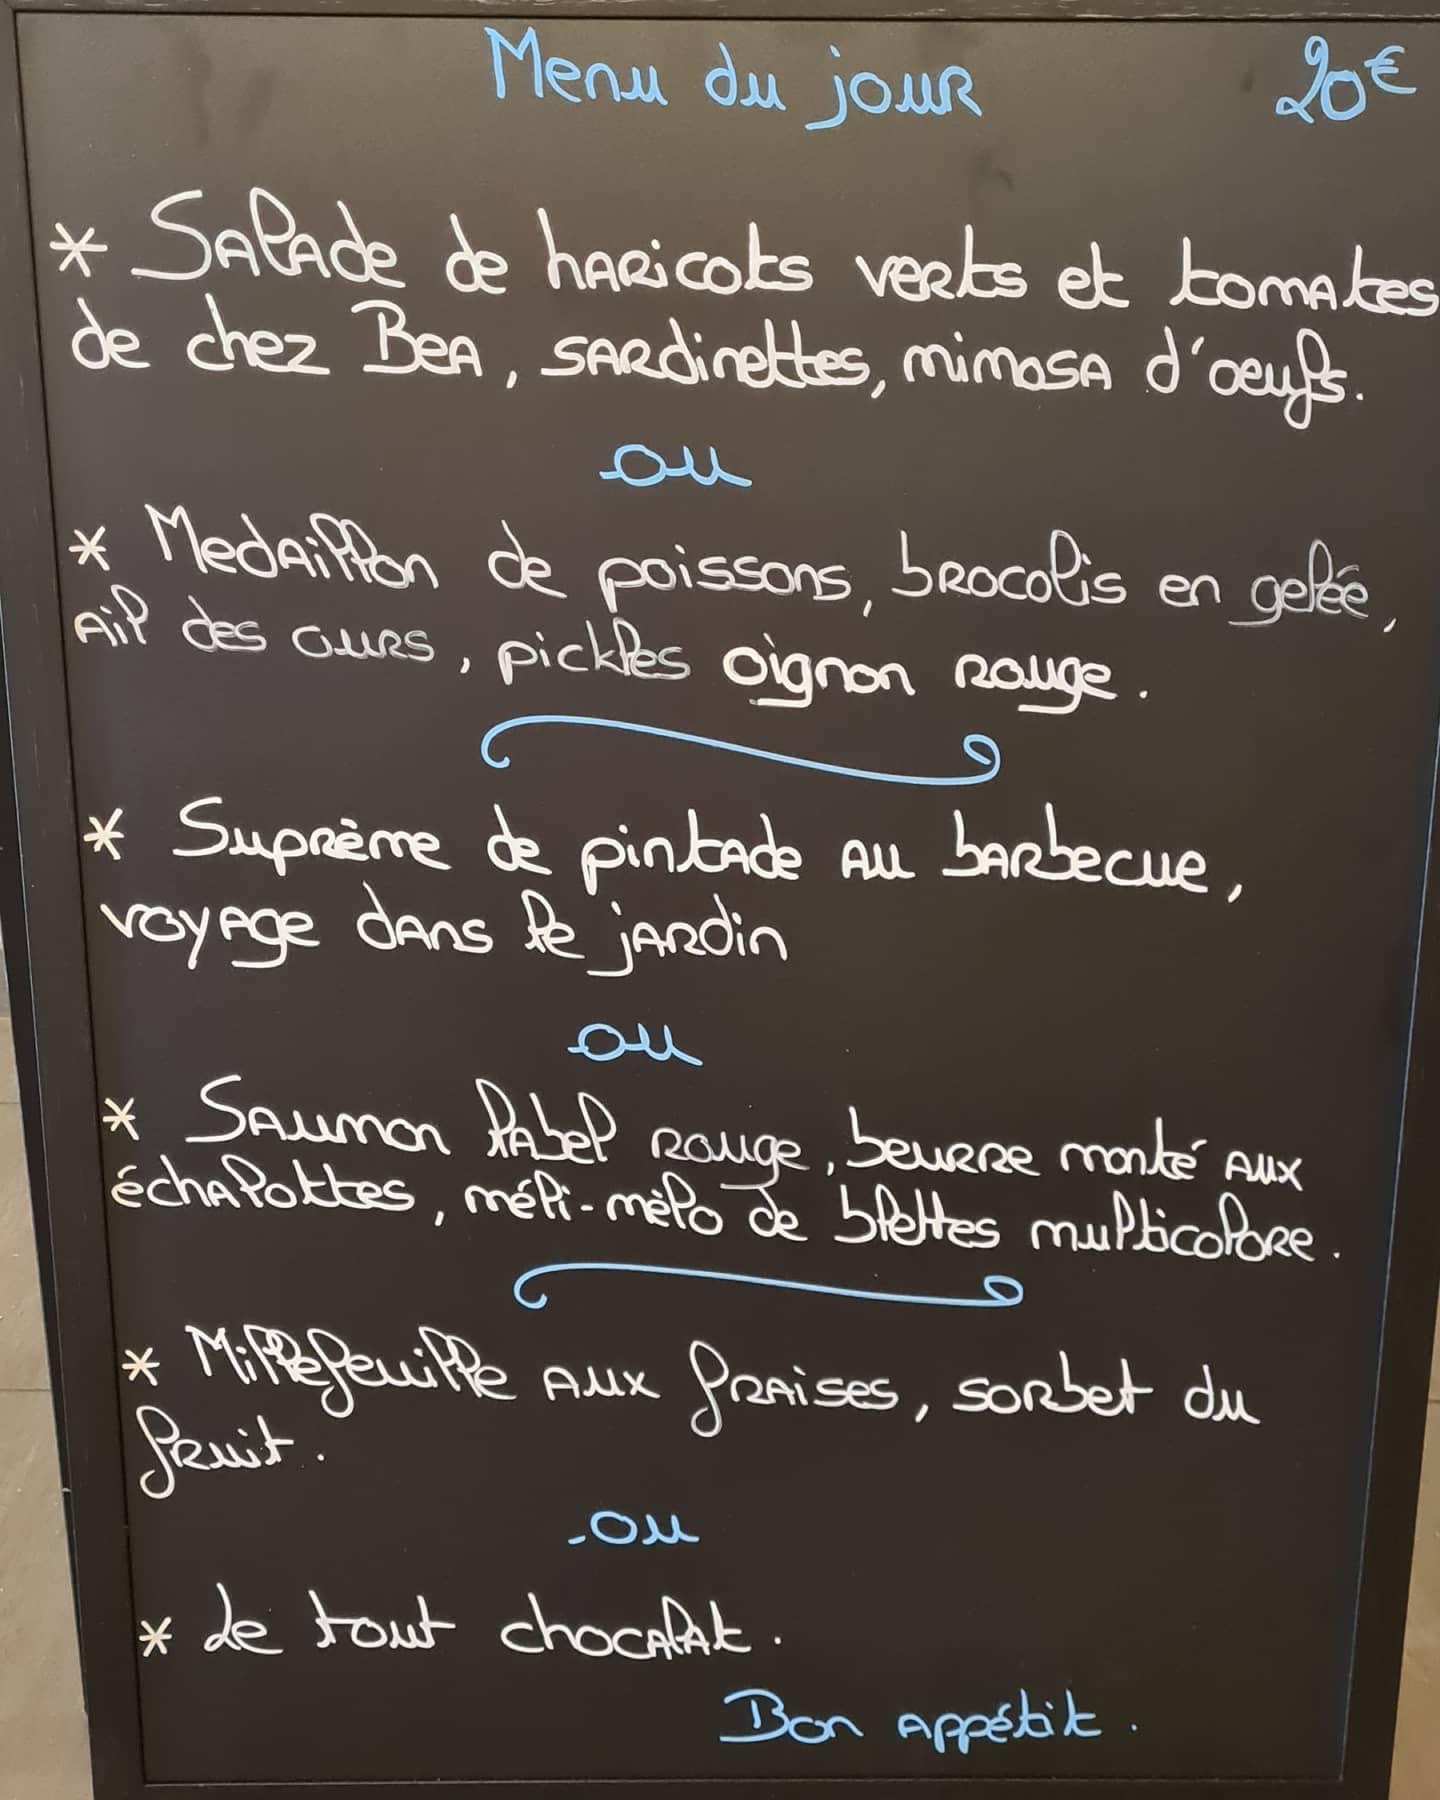 Menu du jour 20€
* Salade de haricots verts et tomates
de chez Bea, sardinettes, mimosa d'oeufs.
ou
* Medaillon de poissons, brocolis en gelée,
ail des ours, pickles oignon rouge.
* Suprème de pintade au barbecue,
voyage dans le jardin
ou
* Saumon label rouge, beurre monté aux
échalottes, méli-mèlo de blettes multicolore.
* Millefeuille aux fraises, sorbet du
fruit.
-ou
* Le tout chocalat.
Bon appétit.